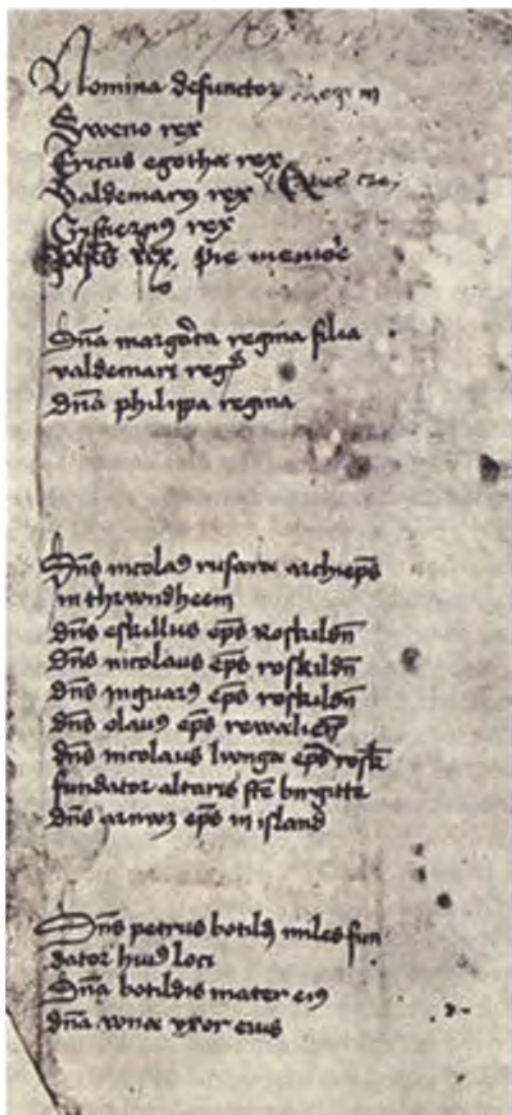 Nomina defunctor
Sweno rex
Ericus egotha rex
Valdemarꝰ rex
rex
Johēs rex, pie memorie
Dn̄a margareta regina filia
valdemari regis
dn̄a philippa regina
Dn̄s nicolaꝰ rusara archiep̄s
in thrwndheem
dn̄s eskillus ep̄s Roskildn̄
dn̄s nicolaus ep̄s roskildn̄
dn̄s inguarꝰ ep̄s roskildn̄
dn̄s olauꝰ ep̄s rewalien̄
dn̄s nicolaus ep̄s rosk
fundator altaris ste birgitte
dn̄s ep̄s in island
Dn̄s petrus botild miles fun
dator huiꝰ loci
Dn̄a botildis mater eiꝰ
dn̄a vxor eius